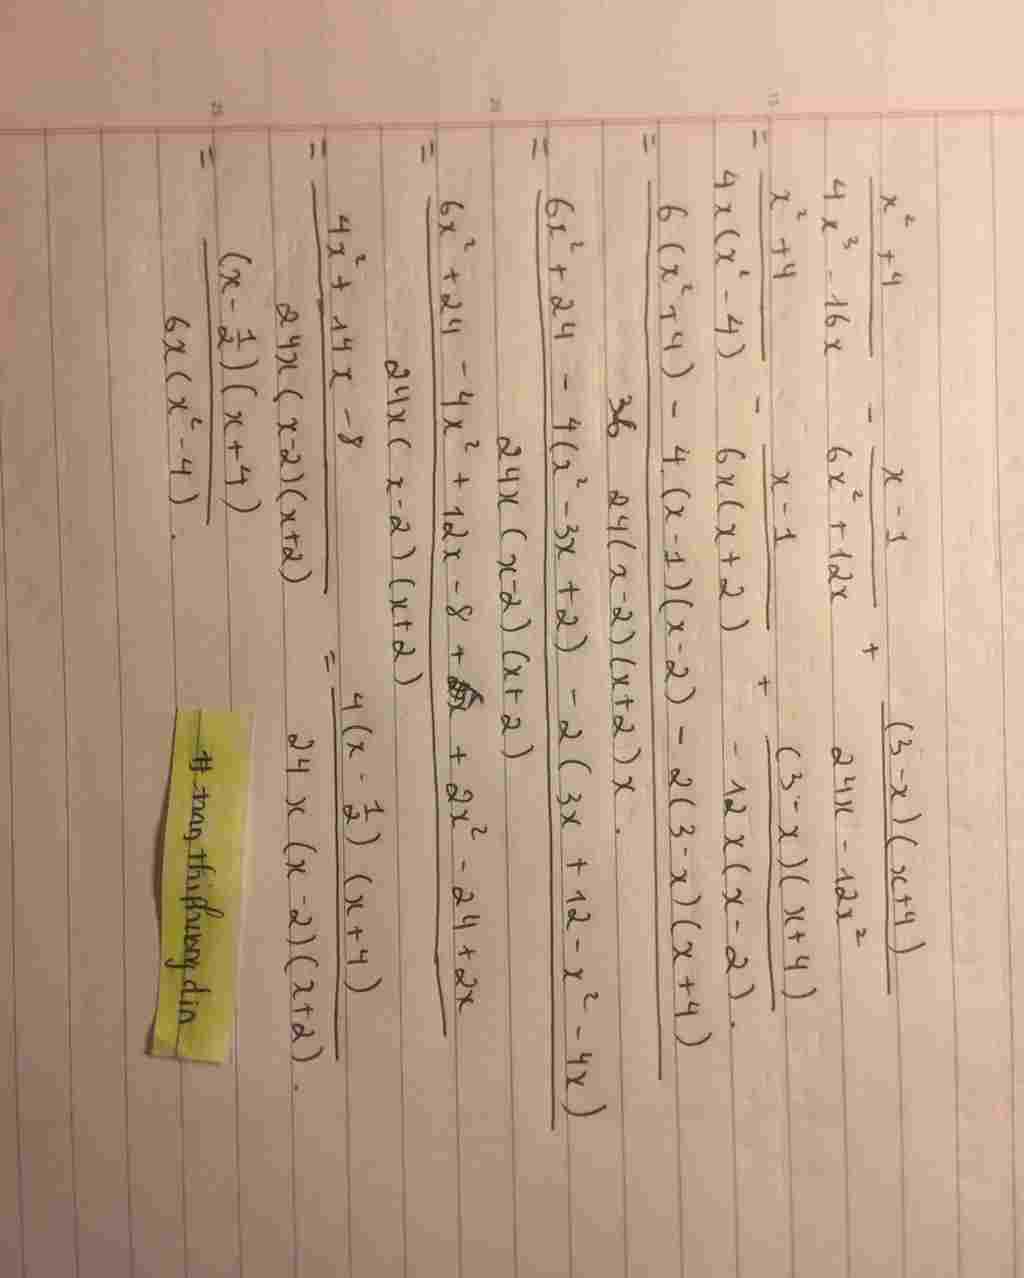 x² + 4 / 4x³ - 16x - x - 1 / 6x² + 12x + (3 - x)(x + 4) / 24x - 12x²
= x² + 4 / 4x(x² - 4) - x - 1 / 6x(x + 2) + (3 - x)(x + 4) / - 12x(x - 2).
= 6(x² + 4) - 4(x - 1)(x - 2) - 2(3 - x)(x + 4) / 24(x - 2)(x + 2)x.
= 6x² + 24 - 4(x² - 3x + 2) - 2(3x + 12 - x² - 4x) / 24x(x - 2)(x + 2)
= 6x² + 24 - 4x² + 12x - 8 + 2x² - 24 + 2x / 24x(x - 2)(x + 2)
= 4x² + 14x - 8 / 24x(x - 2)(x + 2) = 4(x - 1/2)(x + 4) / 24x(x - 2)(x + 2).
= (x - 1/2)(x + 4) / 6x(x² - 4).